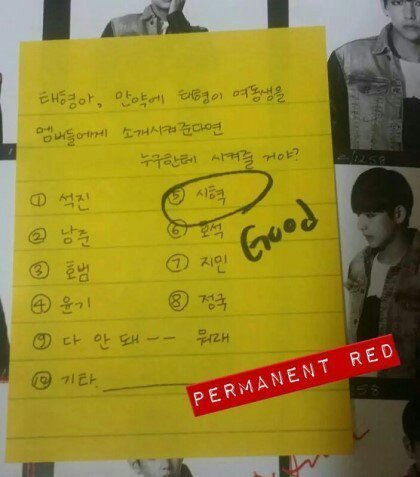 태형아, 만약에 태형이 여동생을
멤버들에게 소개시켜준다면
누구한테 시켜줄 거야?
① 석진
② 남준
③ 호범
④ 윤기
⑤ 시혁
⑥ 호석
⑦ 지민
⑧ 정국
Good
⑨ 다 안 돼ㅡㅡ 뭐래
⑩ 기타
PERMANENT RED